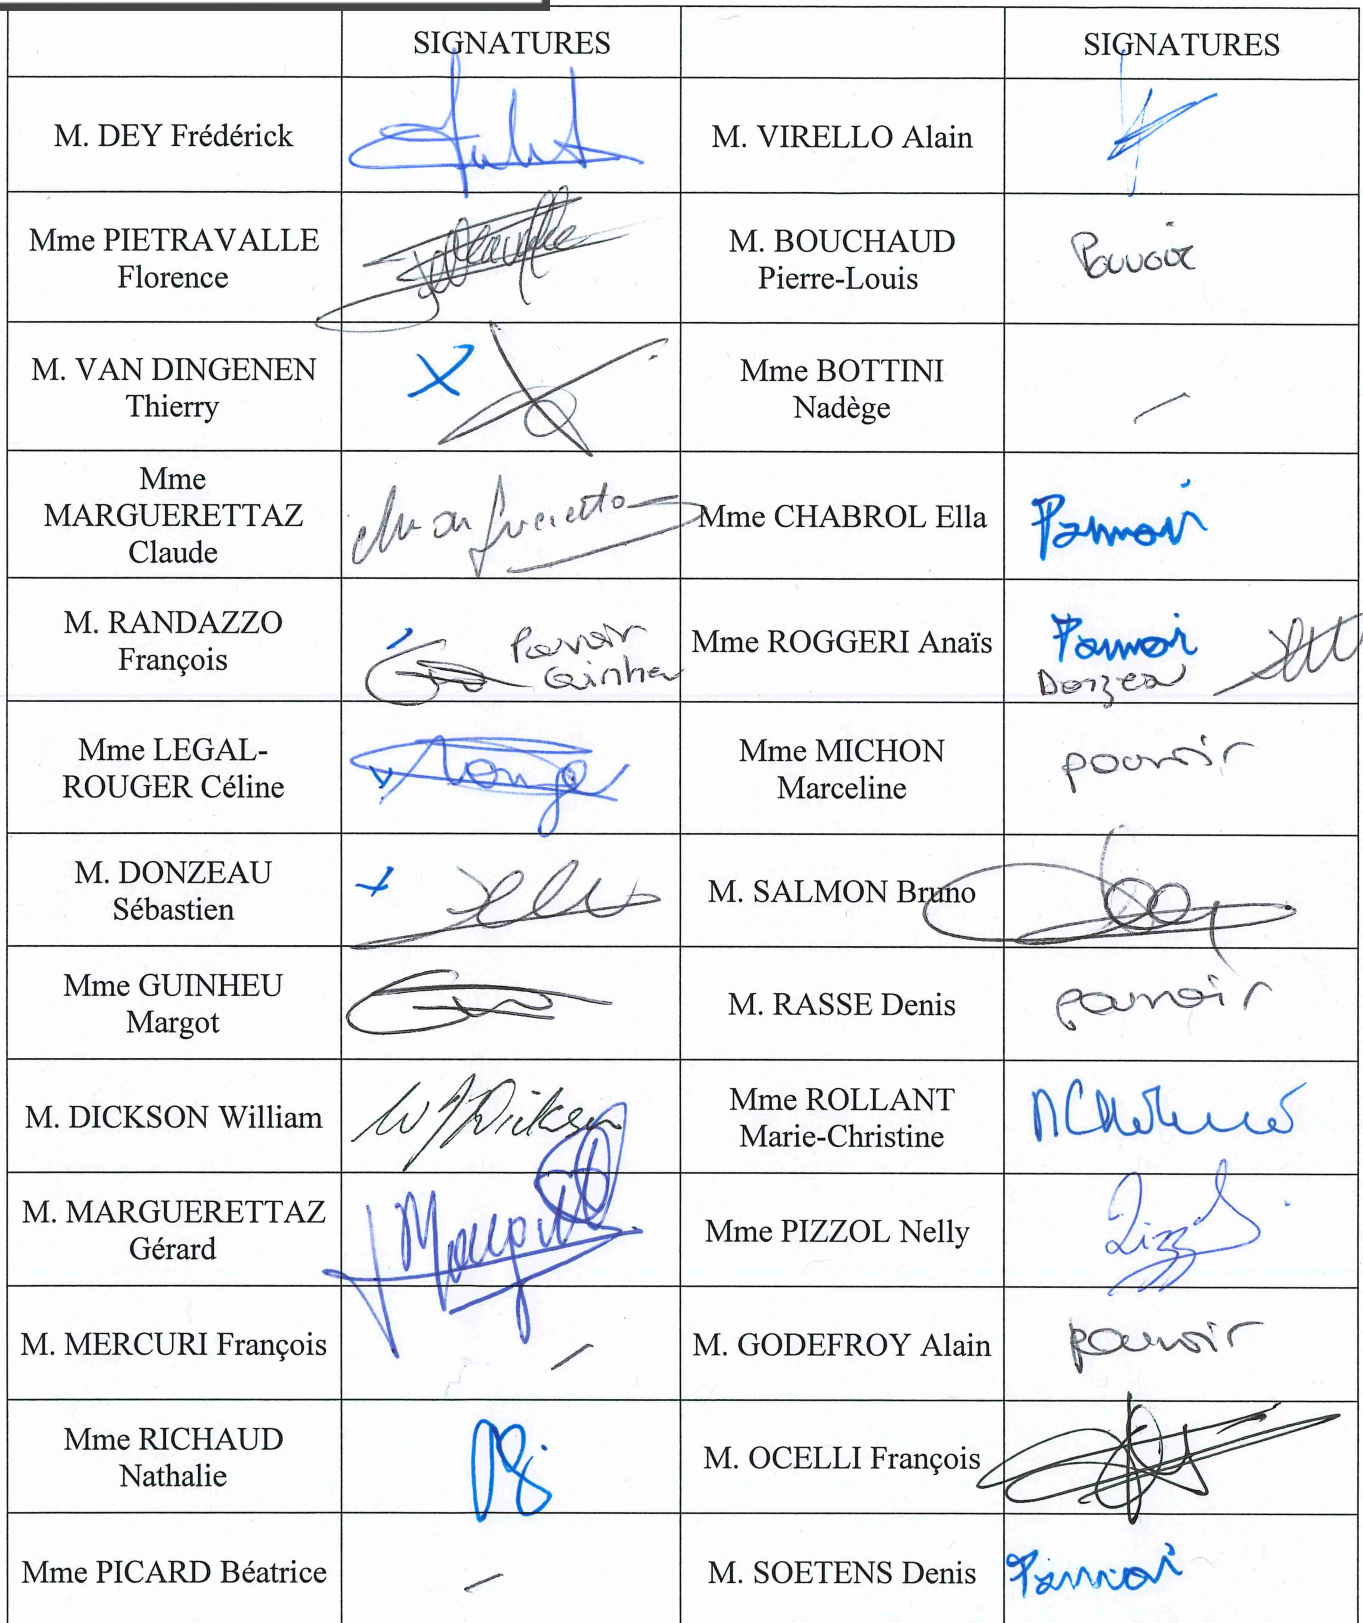 SIGNATURES SIGNATURES
M. DEY Frédérick M. VIRELLO Alain
Mme PIETRAVALLE
Florence
M. BOUCHAUD
Pierre-Louis
Pouvoir
M. VAN DINGENEN
Thierry
X
Mme BOTTINI
Nadège
Mme
MARGUERETTAZ
Claude
Mme CHABROL Ella Pouvoir
M. RANDAZZO
François
Pouvoir
Guinheu
Mme ROGGERI Anaïs
Pouvoir
Donzeau
Mme LEGAL-
ROUGER Céline
Mme MICHON
Marceline
pouvoir
M. DONZEAU
Sébastien
M. SALMON Bruno
Mme GUINHEU
Margot
M. RASSE Denis pouvoir
M. DICKSON William WJDickson
Mme ROLLANT
Marie-Christine
M. MARGUERETTAZ
Gérard
Mme PIZZOL Nelly
M. MERCURI François M. GODEFROY Alain pouvoir
Mme RICHAUD
Nathalie
M. OCELLI François
Mme PICARD Béatrice M. SOETENS Denis Pouvoir